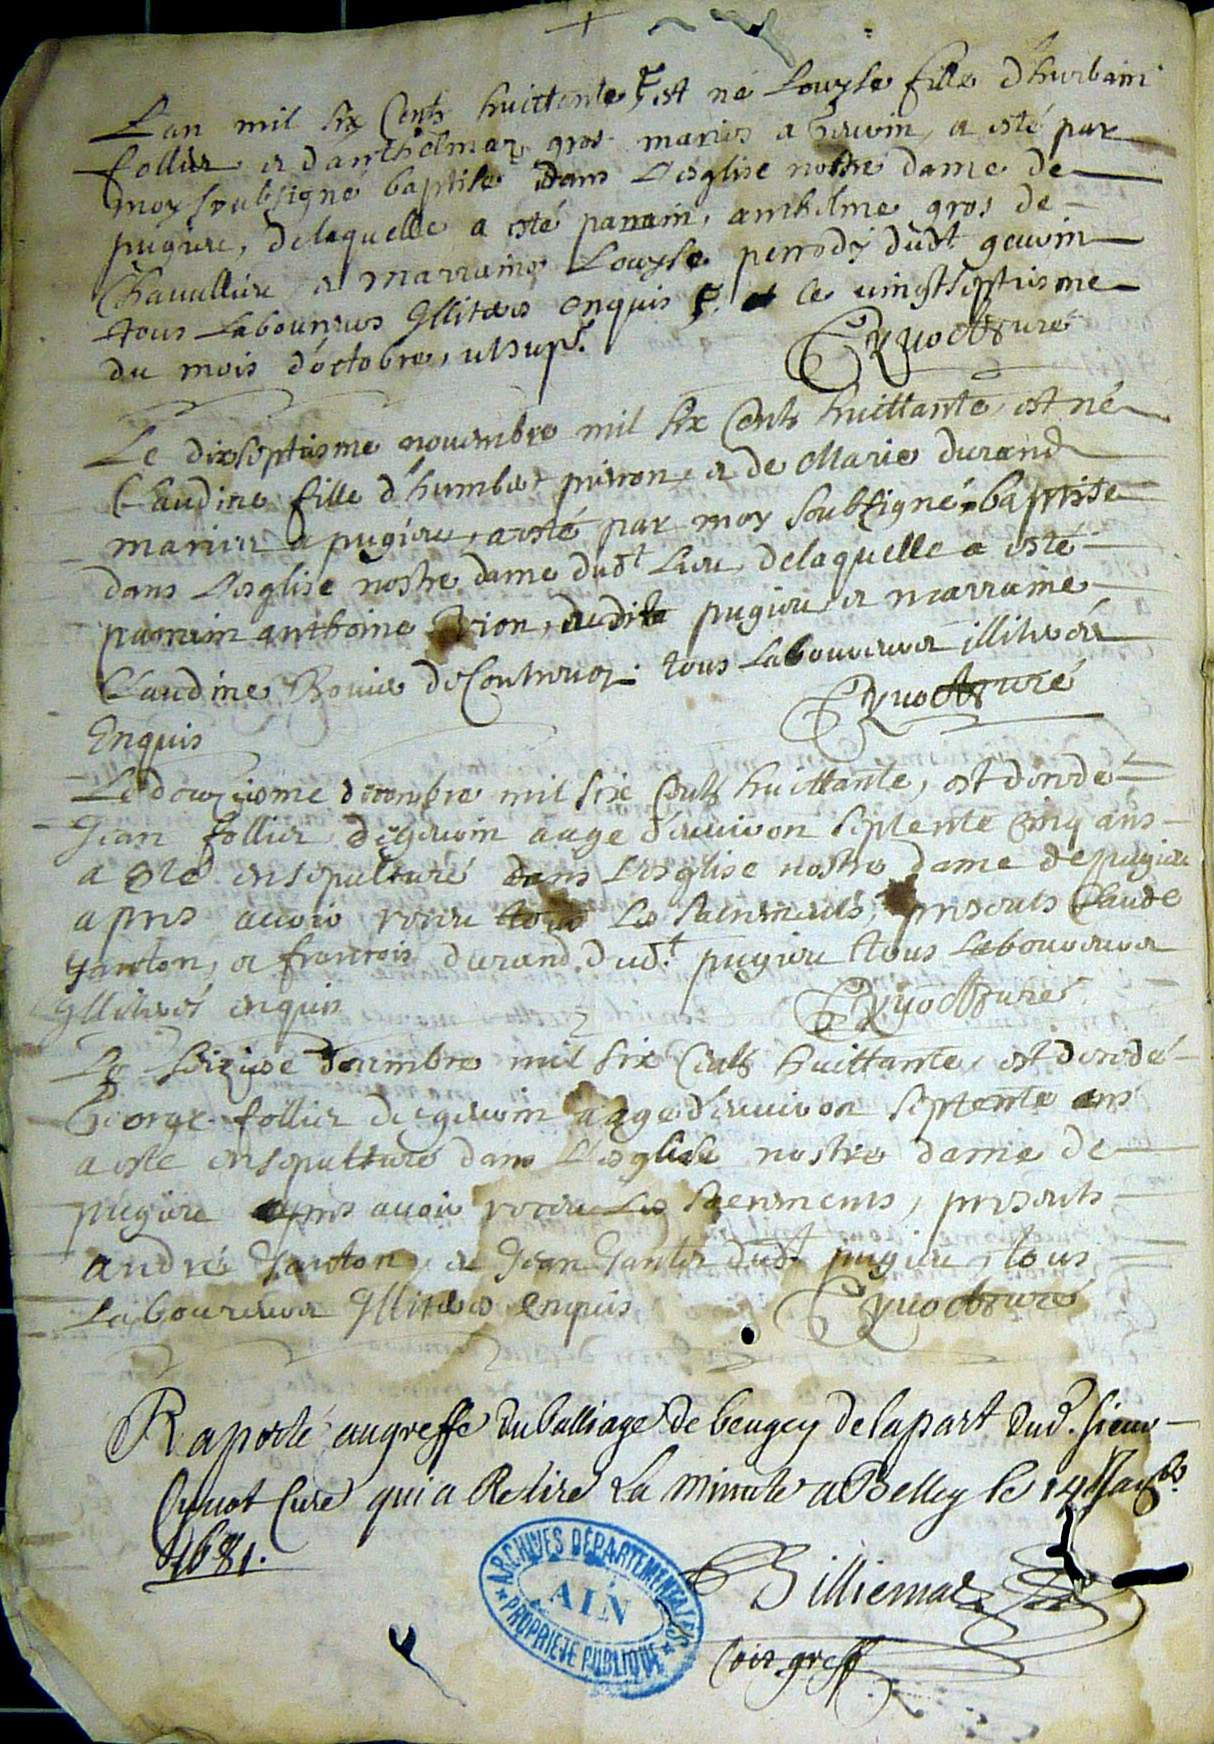 L'an mil six cents huittente est né Louyse fille d'hurbain
follier et d'anthelmaz gros mariés a gevvin, a esté par
moy soubsigné baptise dans L'esglise nostre dame de
pugieu, delaquelle a esté parrain, anthelme gros de
Chavulliere et marraine Louyse perrody dudt gevvin
tous Laboureurs Illiteres enquis ce vingtseptiesme
du mois d'octobre, ut sup.
Cyuot curé
Le dixseptiesme novembre mil six cents huittante, est né
Claudine fille d'humbert pierron et de Marie durand
mariez a pugieu, a esté par moy soubsigné baptise
dans L'esglise nostre dame dudt Lieu delaquelle a esté
parrain anthoine Vion, dudit pugieu et marraine
Claudine Bovier de Contrevoz tous Laboureurs illiterés
Enquis
Cyuot curé
Le douziesme decembre mil six cents huittante, est decedé
Jean follier de gevvin aage d'environ septente cinq ans
a esté ensepulturé dans L'esglise nostre dame de pugieu
apres avoir receu tous Les sacrements, presents Claude
Janton, et francois durand dudt pugieu tous Laboureurs
Illiterés enquis
Cyuot curé
Le seizise decembre mil six cents huittante, est decedé
George follier de gevvin aage d'environ septente ans
a esté ensepulturé dans L'esglise nostre dame de
pugieu apres avoir receu Les sacrements, presents
andré Janton, et Jean Jantet dudt pugieu, tous
Laboureurs Illiteres Enquis
Cyuot curé
Raporté augreffe du balliage de beugey de la part dud. sieur
Cyuot Curé qui a Retiré La minute a Belley le 14 Janv.
1681.
Billiemaz
Coin greff
ARCHIVES DÉPARTEMENTALES
AIN
PROPRIÉTÉ PUBLIQUE